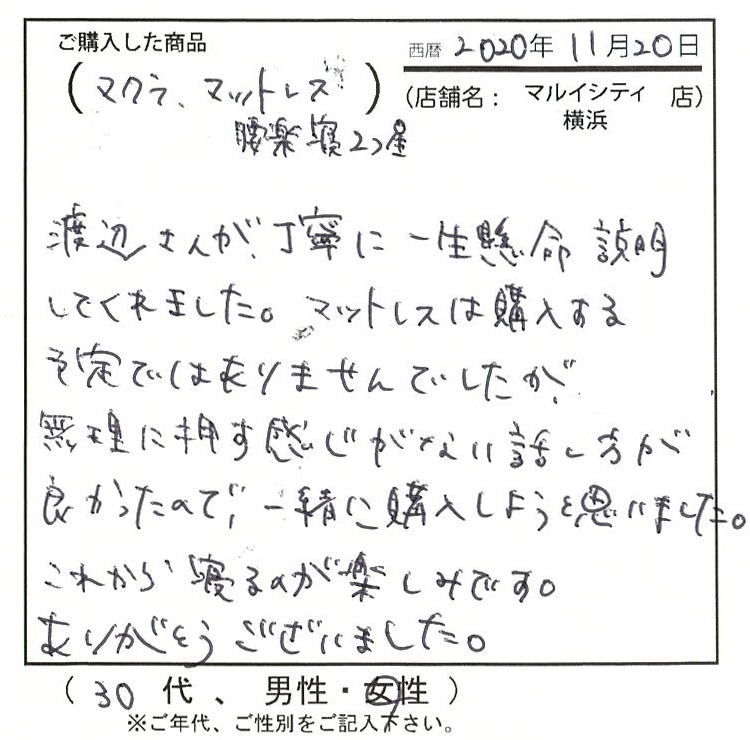 ご購入した商品
西暦 2020年 11月20日
(マクラ、マットレス)
(店舗名： マルイシティ横浜 店)
腰楽寝2つ星
渡辺さんが、丁寧に一生懸命説明
してくれました。マットレスは購入する
予定ではありませんでしたが、
無理に押す感じがない話し方が
良かったので、一緒に購入しようと思いました。
これから寝るのが楽しみです。
ありがとうございました。
(30 代、男性・女性)
※ご年代、ご性別をご記入下さい。